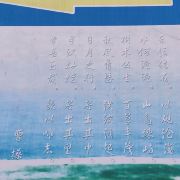 东临碣石 以观沧海
水何澹澹 山岛竦峙
树木丛生 百草丰茂
秋风萧瑟 洪波涌起
日月之行 若出其中
星汉灿烂 若出其里
幸甚至哉 歌以咏志
曹操